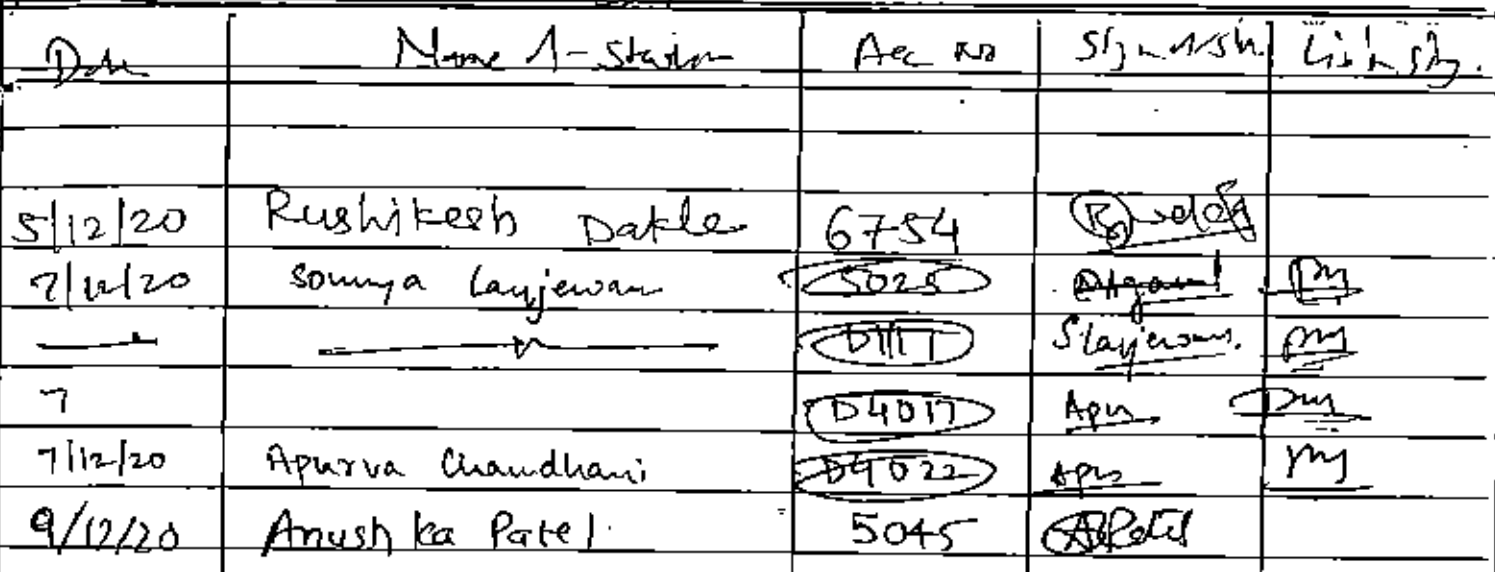 Date Name of Student Acc no Sign of St.
5/12/20 Rushikesh Dakle 6754
7/12/20 Soumya Lanjewar 5025
D1117 Slanjewar.
7 D4017 Apur
7/12/20 Apurva Chaudhari D4022 Apur
9/12/20 Anushka Patel 5045 APatel